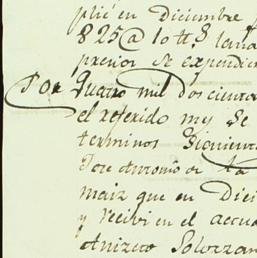 plié en Diciembre
825@ 10 tt.s
precios de expendi
Por Quatro mil Dos cient
el referido my se
terminos siguient
Jose Antonio de la
maiz que en Dici
y recivi en el
Anizeto Solorzan